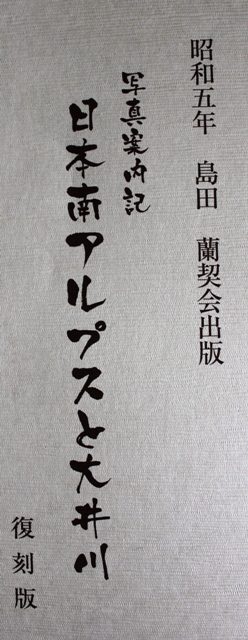 昭和五年 島田 蘭契会出版
写真案内記
日本南アルプスと大井川
復刻版